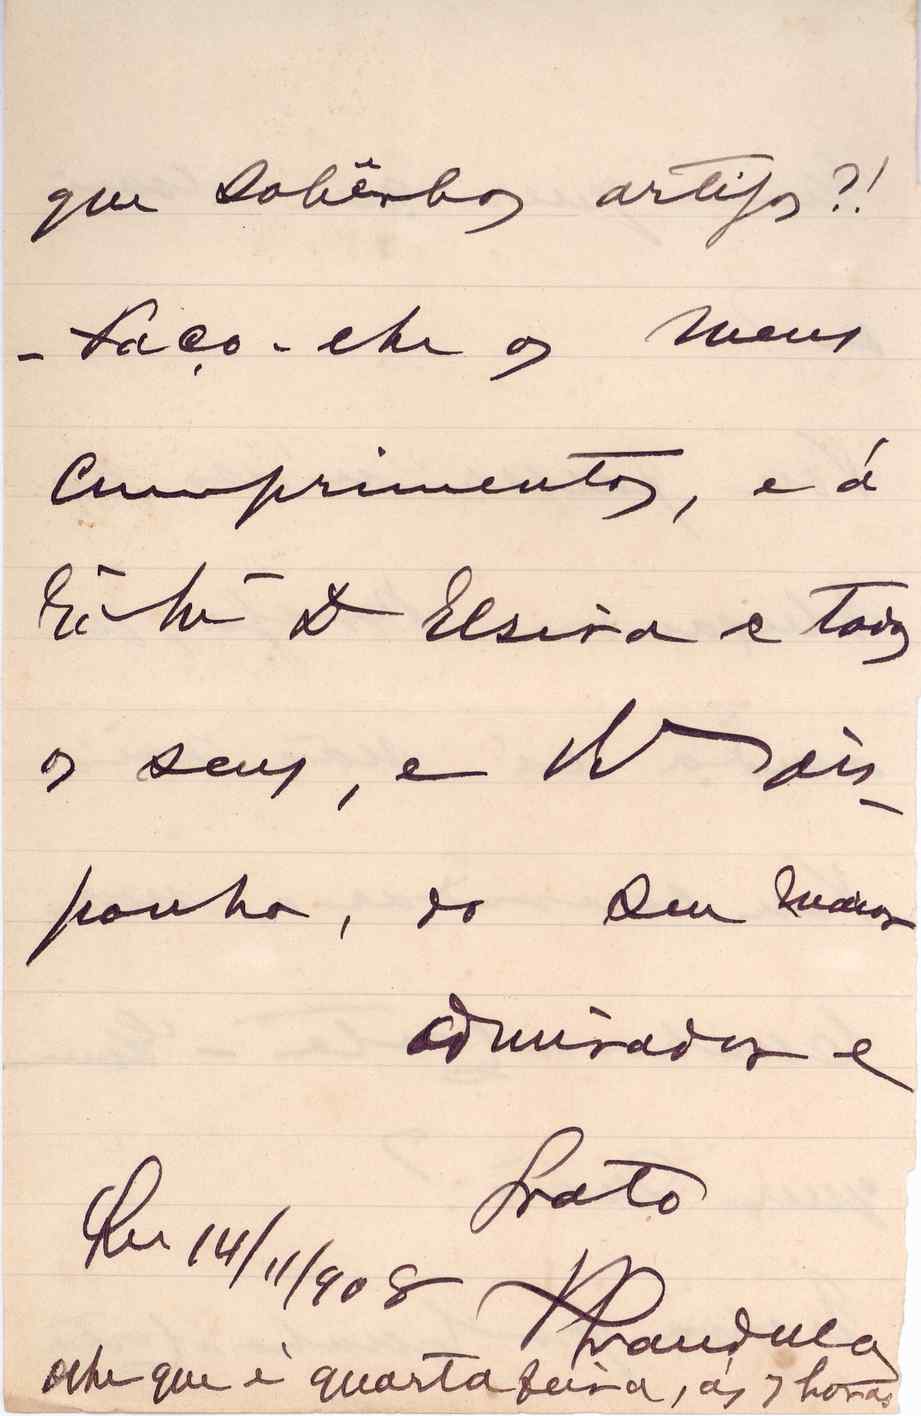 que sobêrbos artigos?!
- Faço-lhe os meus
cumprimentos, e á
D. Elzira e todos
os seus, e dis-
ponha, do seu maior
admirador e
Grato
14/11/908
olhe que é quarta feira, ás 7 horas